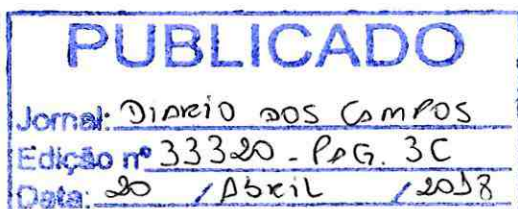 PUBLICADO
Jornal: DIARIO DOS CAMPOS
Edição nº 33320 - PAG. 3C
Data: 20 / Abril / 2018